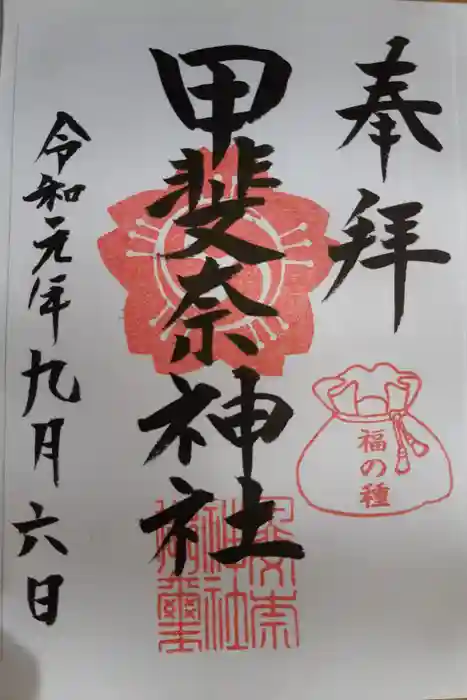 奉拝
福の種
甲斐奈神社
甲斐奈
神社
令和元年九月六日